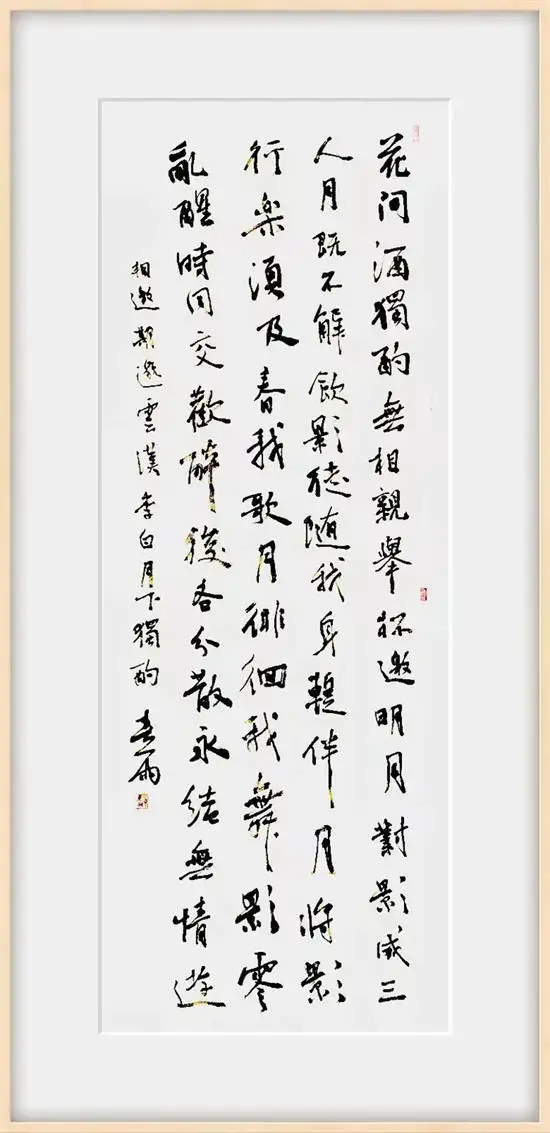 花间酒獨酌無相親舉杯邀明月對影成三
人月既不解飲影徒随我身暫伴月將影
行楽須及春我歌月徘徊我舞影零
亂醒時同交歡醉後各分散永結無情遊
相邀期邈雲漢李白月下獨酌